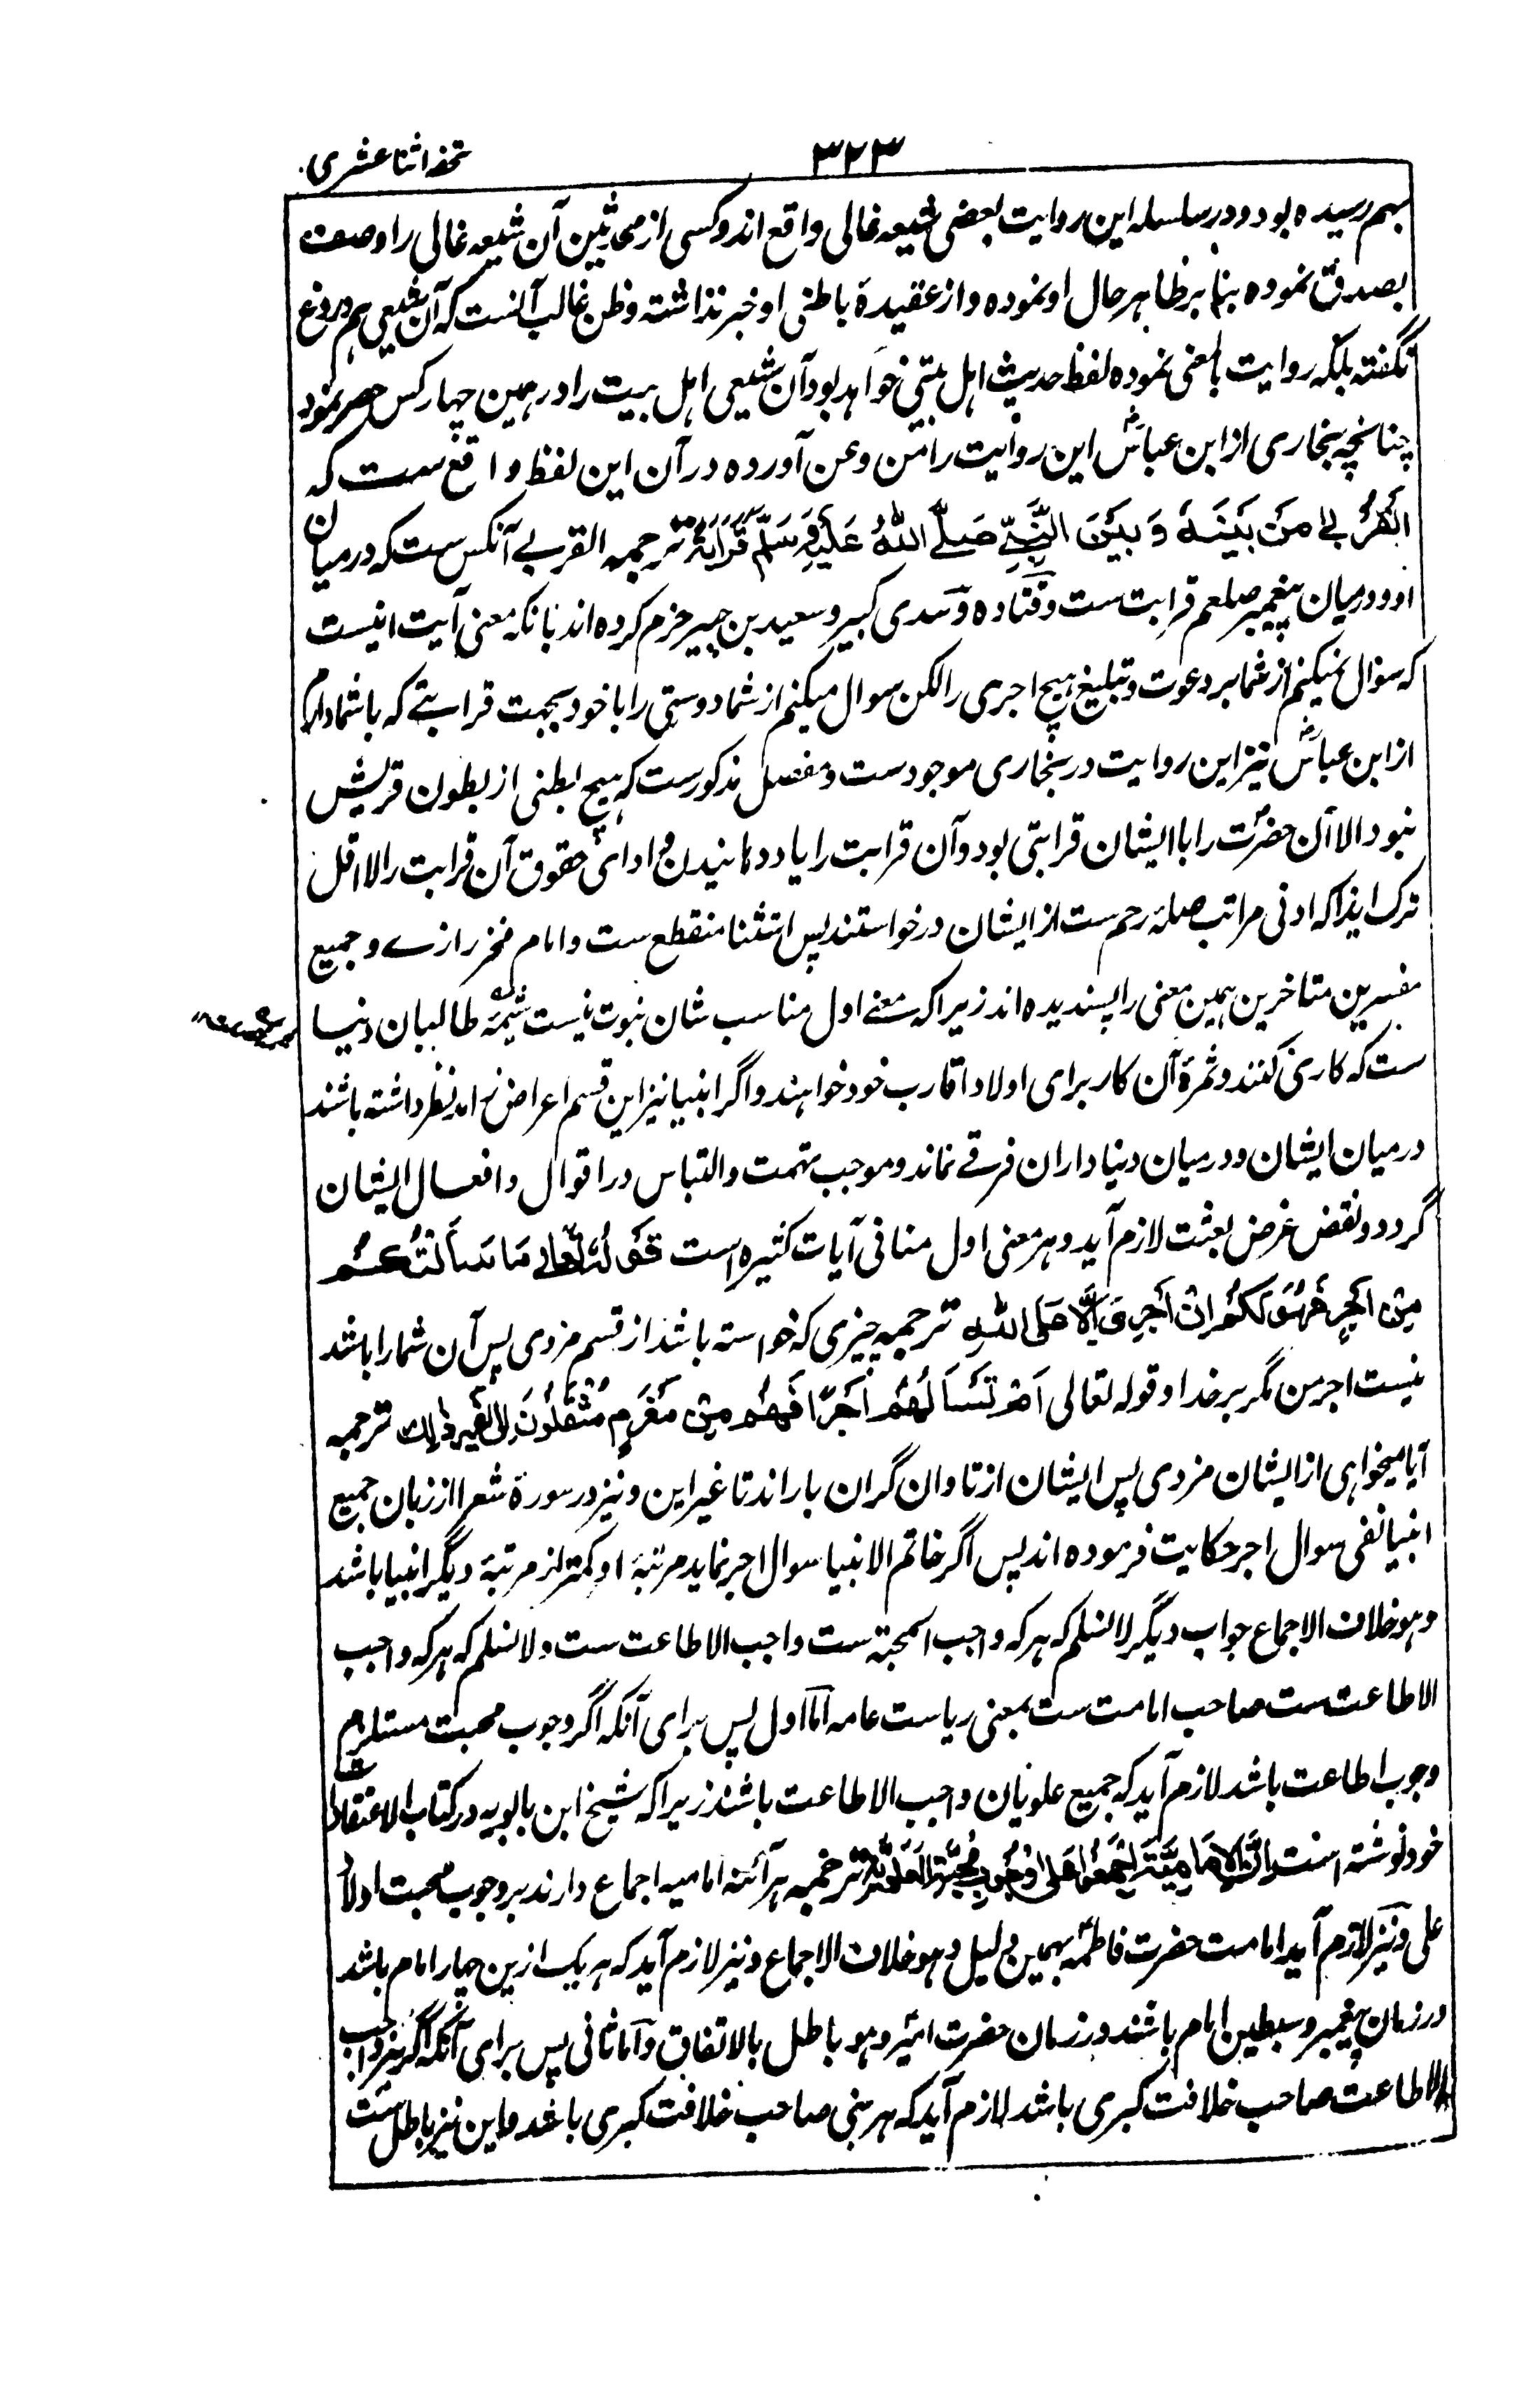 ۳۲۳
تحفه اثنا عشری
بهم رسیده بود و در سلسله این روایت بعضی شیعه غالی واقع اند و کسی از محدثین آن شیعه غالی را وصف
بصدق نموده بنا بر ظاهر حال او نموده و از عقیدۀ باطنی او خبر نداشته و ظن غالب آنست که آن شیعی هم دروغ
نگفته بلکه روایت بالمعنی نموده لفظ حدیث اهل بیتی خواهد بود آن شیعی اهل بیت را در همین چهار کس حصر نمود
چنانچه بخاری از ابن عباسؓ این روایت را من و عن آورده در آن این لفظ واقع ست که
القُربے مَن بَینَهٗ وَبَینَ النَّبِیِّ صَلَّے اللهُ عَلَیهِ وَسَلَّم قَرَابَةٌ ترجمه القربے آنکس ست که درمیان
او و درمیان پیغمبر صلعم قرابت ست و قتاده و سدی کبیر و سعید بن جبیر جزم کرده اند بانکه معنی آیت اینست
که سوال نمیکنم از شما بر دعوت و تبلیغ هیچ اجری را لکن سوال میکنم از شما دوستی را با خود بجهت قرابتے که با شما دارم
از ابن عباسؓ نیز این روایت در بخاری موجود ست و مفصل مذکور ست که هیچ بطنی از بطون قریش
نبود الا آن حضرت را با ایشان قرابتی بود و آن قرابت را یاد دهانیدن و ادای حقوق آن قرابت را لا اقل
ترک ایذا که ادنی مراتب صلۀ رحم ست از ایشان درخواستند پس استثنا منقطع ست و امام فخر رازے و جمیع
مفسرین متاخرین همین معنی را پسندیده اند زیرا که معنے اول مناسب شان نبوت نیست شیمۀ طالبان دنیا
ست که کاری کنند و ثمرۀ آن کار برای اولاد و اقارب خود خواهند و اگر انبیا نیز این قسم اغراض را مد نظر داشته باشند
درمیان ایشان و درمیان دنیا داران فرقے نماند و موجب تهمت و التباس در اقوال و افعال ایشان
گردد و نقض غرض بعثت لازم آید و هر معنی اول منافی آیات کثیره است قَولُهٗ تَعَالٰی مَا سَأَلتُكُم
مِن اَجرٍ فَهُوَ لَكُم اِن اَجرِیَ اِلَّا عَلَی اللهِ ترجمه چیزی که خواسته باشد از قسم مزدی پس آن شما را باشد
نیست اجر من مگر بر خدا و قوله تعالی اَم تَسأَلُهُم اَجرًا فَهُم مِن مَغرَمٍ مُثقَلُونَ اِلٰی غَیرِ ذٰلِكَ ترجمه
آیا میخواهی از ایشان مزدی پس ایشان از تاوان گران بار اند تا غیر این و نیز در سورۀ شعرا از زبان جمیع
انبیا نفی سوال اجر حکایت فرموده اند پس اگر خاتم الانبیا سوال اجر نماید مرتبۀ او کمتر از مرتبۀ دیگر انبیا باشد
و هو خلاف الاجماع جواب دیگر لا نسلم که هر که واجب المحبة ست واجب الاطاعت ست و لا نسلم که هر که واجب
الاطاعت ست صاحب امامت ست بمعنی ریاست عامه اما اول پس برای آنکه اگر وجوب محبت مستلزم
وجوب اطاعت باشد لازم آید که جمیع علویان واجب الاطاعت باشند زیرا که شیخ ابن بابویه در کتاب الاعتقادات
خود نوشته است اِنَّ الاِمَامِیَّةَ اَجمَعُوا عَلٰی وُجُوبِ مَحَبَّةِ العَلَوِیَّةِ ترجمه هر آئنه امامیه اجماع دارند بر وجوب محبت اولاد
علی و نیز لازم آید امامت حضرت فاطمه بهمین دلیل و هو خلاف الاجماع و نیز لازم آید که هر یک ازین چهار امام باشد
در زمان پیغمبر و سبطین امام باشند در زمان حضرت امیر و هو باطل بالاتفاق و اما ثانی پس برای آنکه اگر هر واجب
الاطاعت صاحب خلافت کبری باشد لازم آید که هر نبی صاحب خلافت کبری باشد و این نیز باطل ست